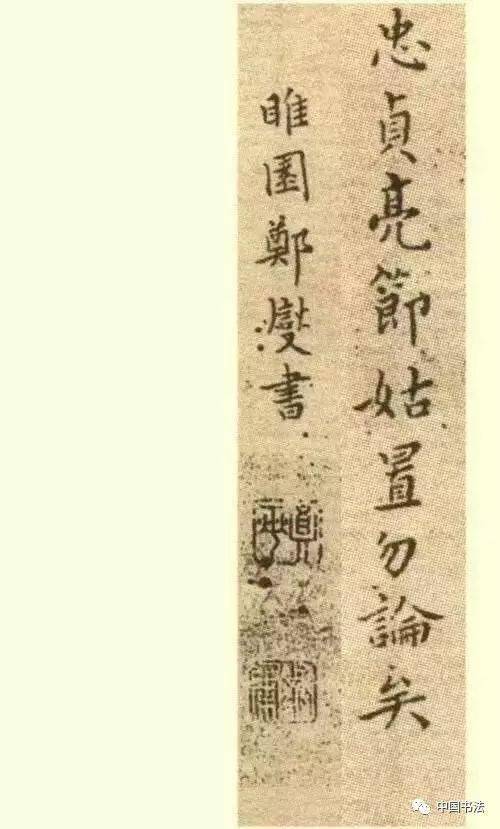 忠貞亮節姑置勿論矣
睢園鄭燮書
中国书法